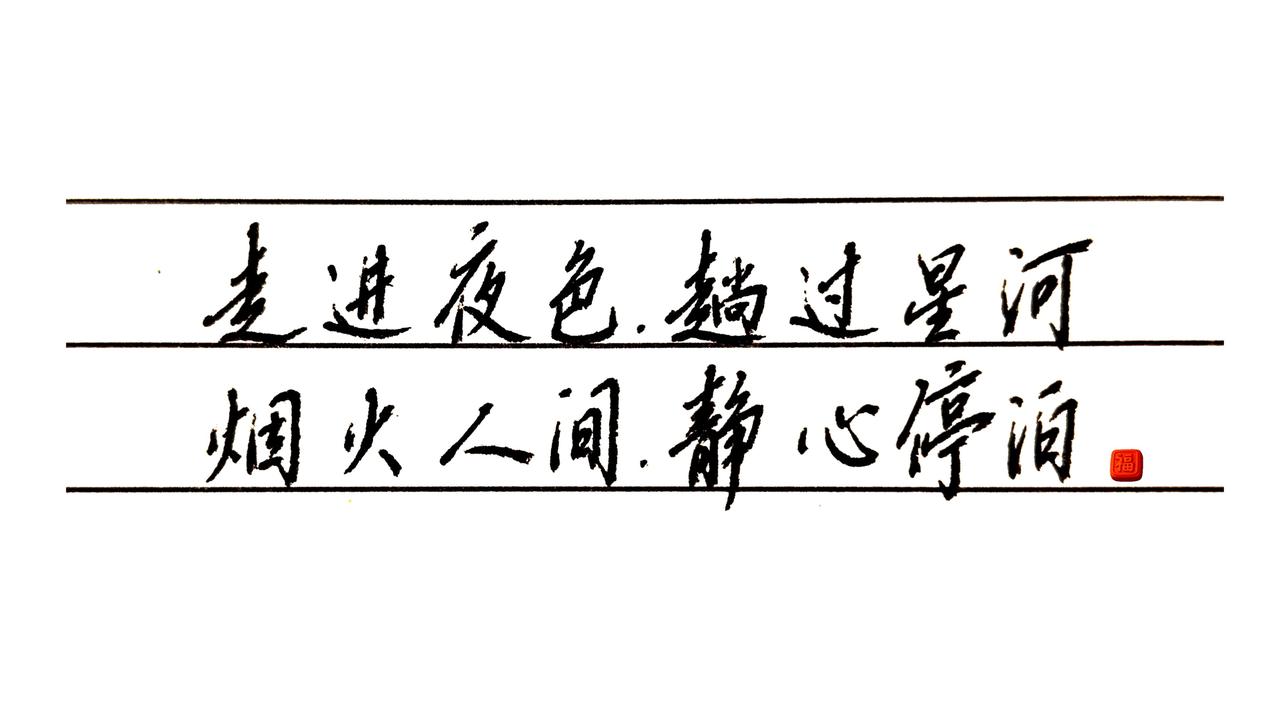 走进夜色.趟过星河
烟火人间.静心停泊
福